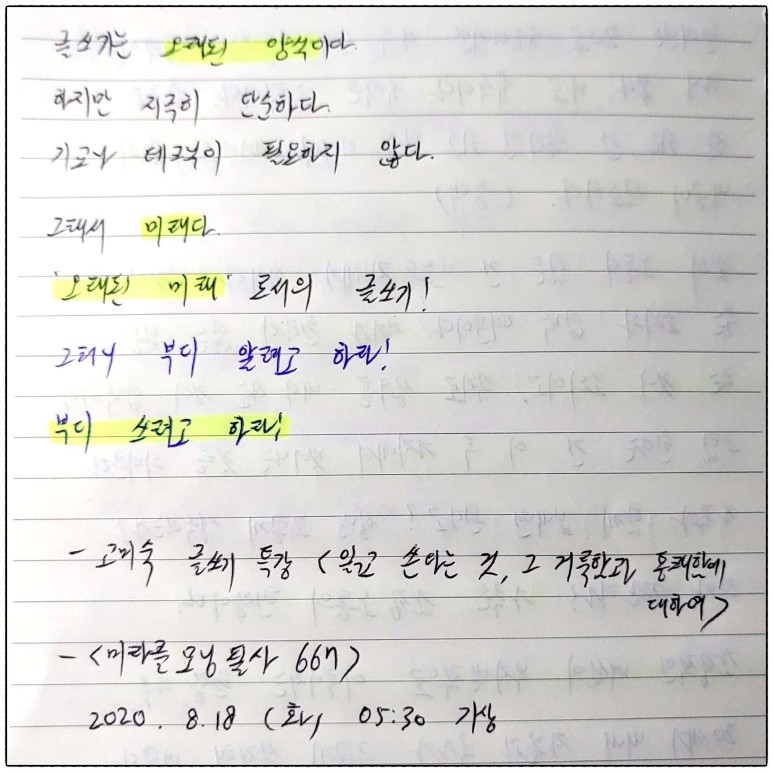 글쓰기는 오래된 양식이다.
하지만 지극히 단순하다.
기교나 테크닉이 필요하지 않다.
그래서 미래다.
'오래된 미래'로서의 글쓰기!
그러니 부디 알려고 하라!
부디 쓰려고 하라!
- 고미숙 글쓰기 특강 <읽고 쓴다는 것, 그 거룩함과 통쾌함에
대하여>
- <미라클모닝 필사 66기>
2020. 8.18 (화) 05:30 기상